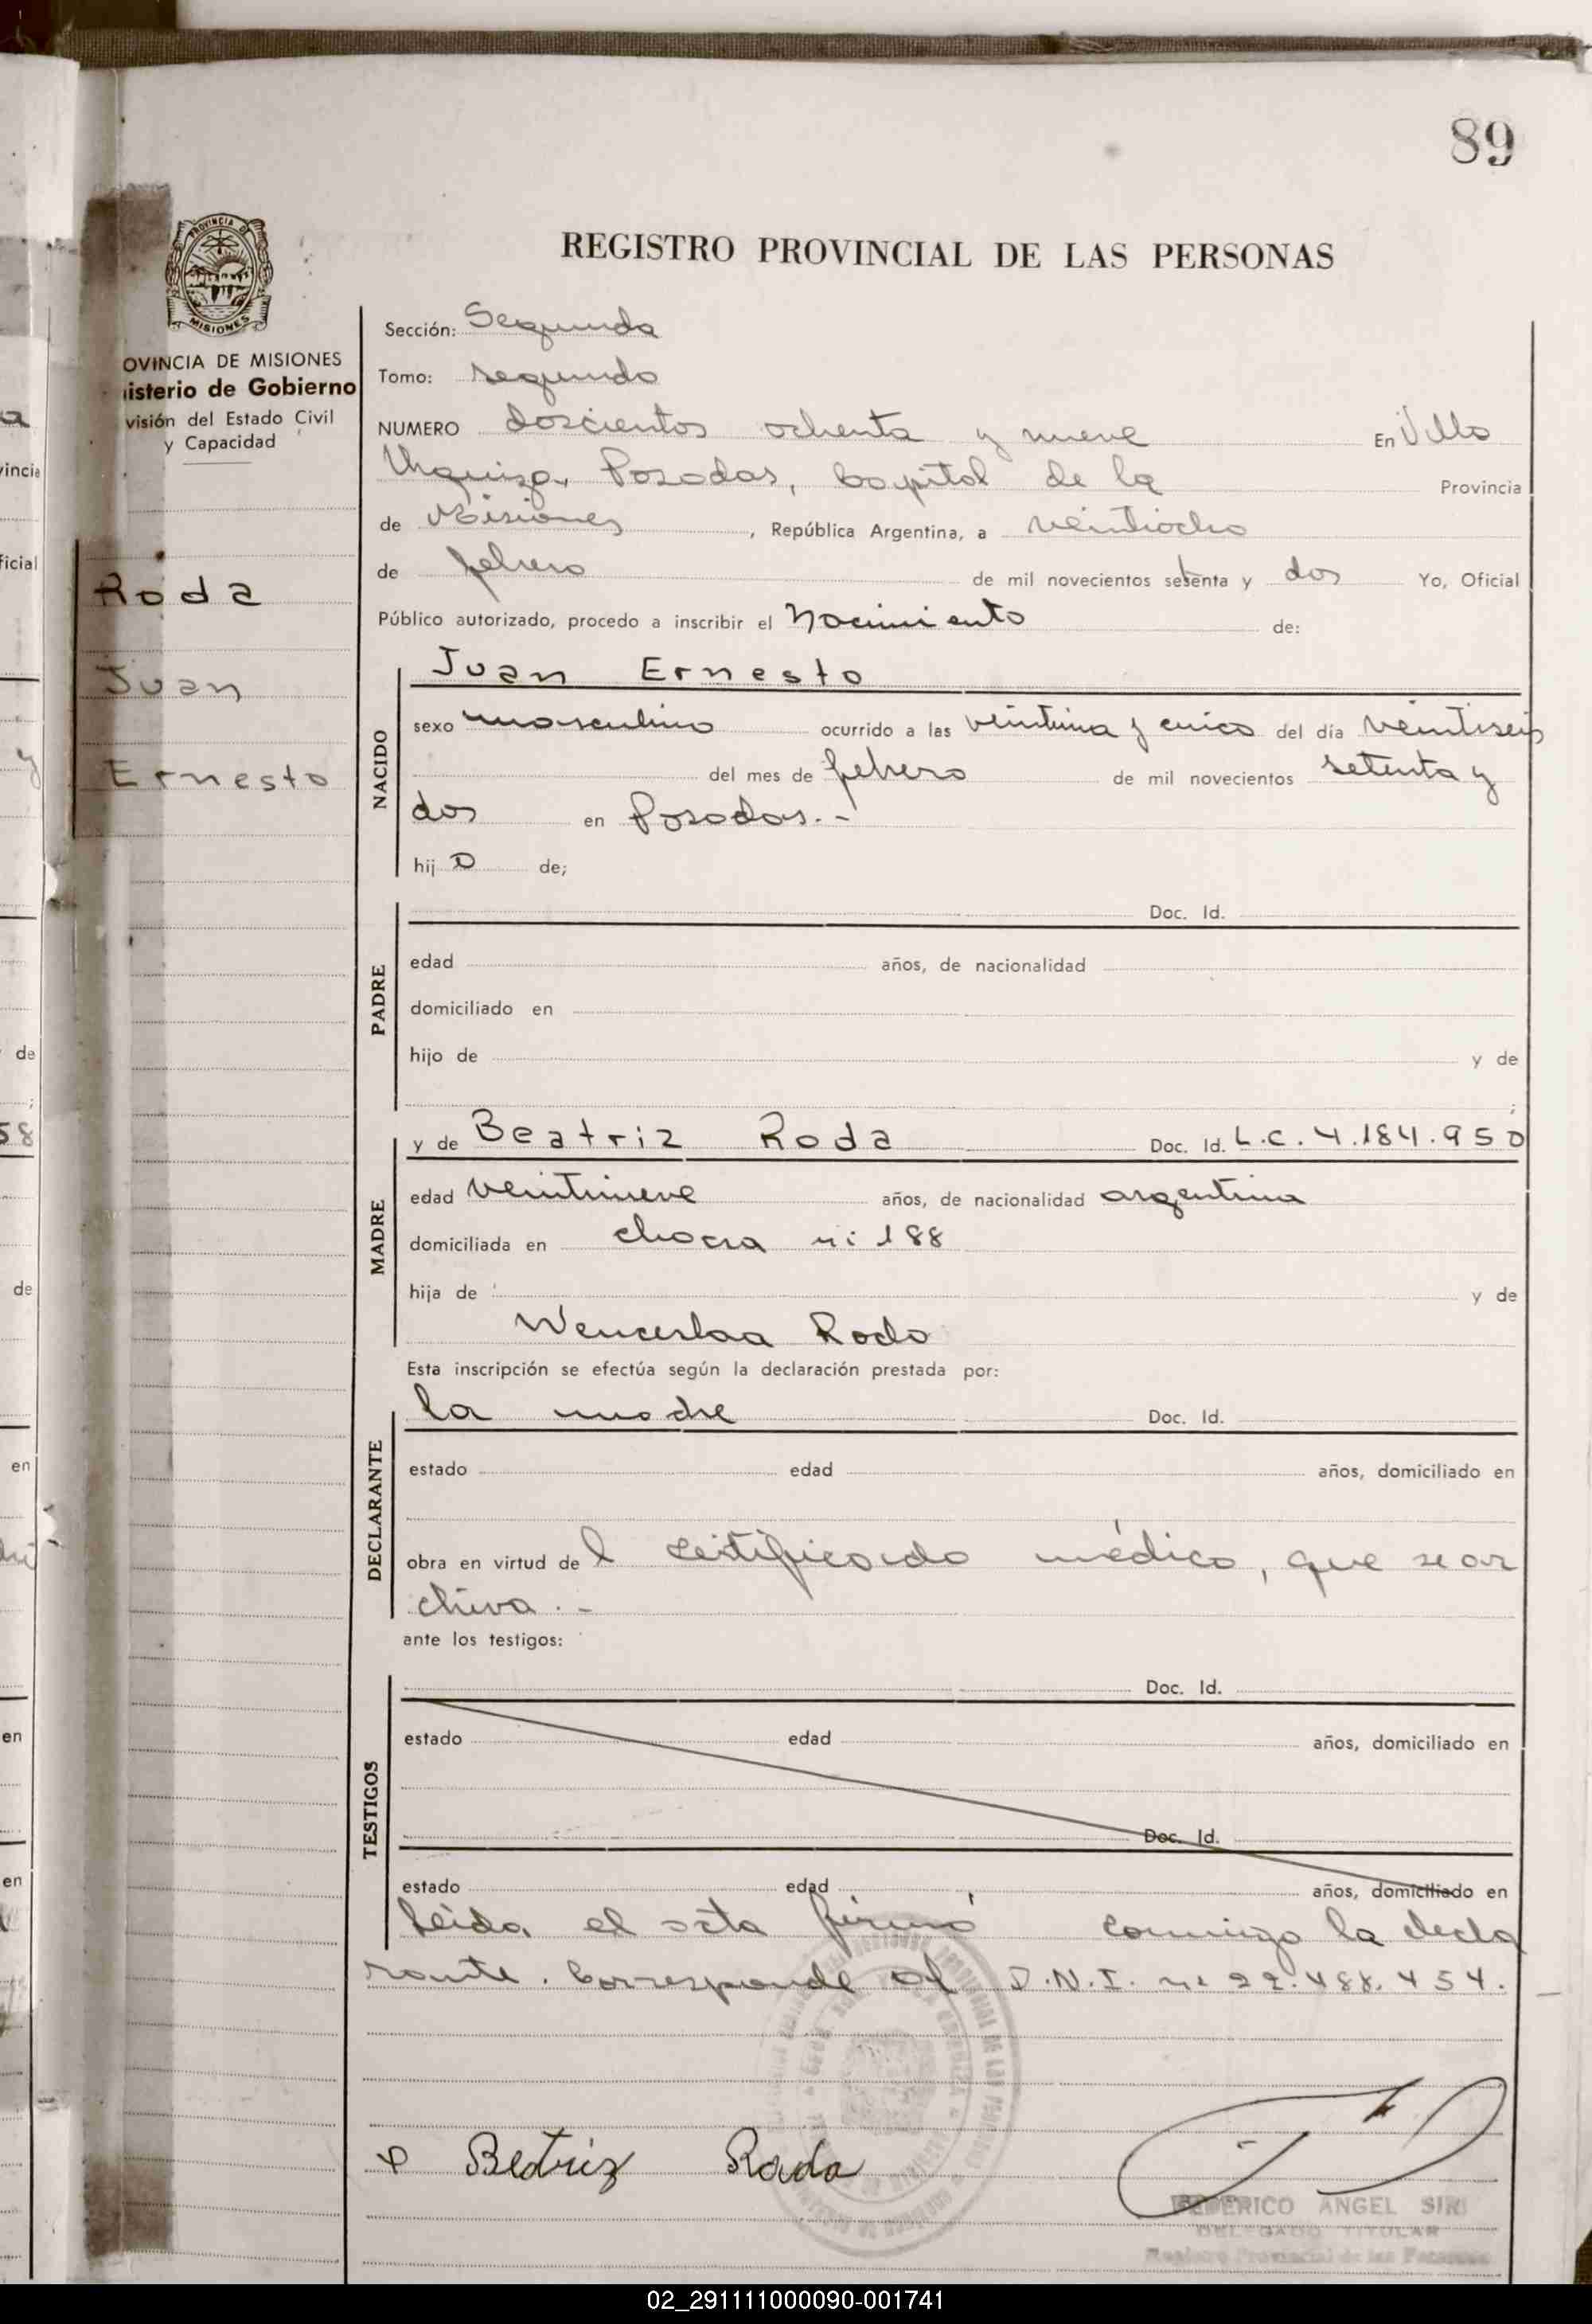 89
REGISTRO PROVINCIAL DE LAS PERSONAS
PROVINCIA DE
MISIONES
OVINCIA DE MISIONES
isterio de Gobierno
visión del Estado Civil
y Capacidad
Roda
Juan
Ernesto
Sección: Segunda
Tomo: segundo
NUMERO doscientos ochenta y nueve En Villa
Urquiza, Posadas, Capital de la Provincia
de Misiones, República Argentina, a veintiocho
de febrero de mil novecientos setenta y dos Yo, Oficial
Público autorizado, procedo a inscribir el Nacimiento de:
NACIDO
Juan Ernesto
sexo masculino ocurrido a las veintiuna y cinco del día veintiseis
del mes de febrero de mil novecientos setenta y
dos en Posadas.-
hij o de;
PADRE
Doc. Id.
edad años, de nacionalidad
domiciliado en
hijo de y de
;
MADRE
y de Beatriz Roda Doc. Id. L.C. 4.184.950
edad veintinueve años, de nacionalidad argentina
domiciliada en chacra n: 188
hija de y de
Wenceslaa Roda
Esta inscripción se efectúa según la declaración prestada por:
DECLARANTE
la madre Doc. Id.
estado edad años, domiciliado en
obra en virtud de l certificado médico, que se ar
chiva.-
ante los testigos:
TESTIGOS
Doc. Id.
estado edad años, domiciliado en
Doc. Id.
estado edad años, domiciliado en
Leida el acta firmó conmigo la decla
rante. Corresponde al D.N.I. n: 22.488.454.
Beatriz Roda
FEDERICO ANGEL SIRI
DELEGADO TITULAR
Registro Provincial de las Personas
02_291111000090-001741